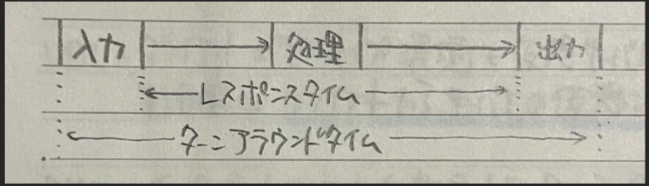 入力 処理 出力
レスポンスタイム
ターンアラウンドタイム